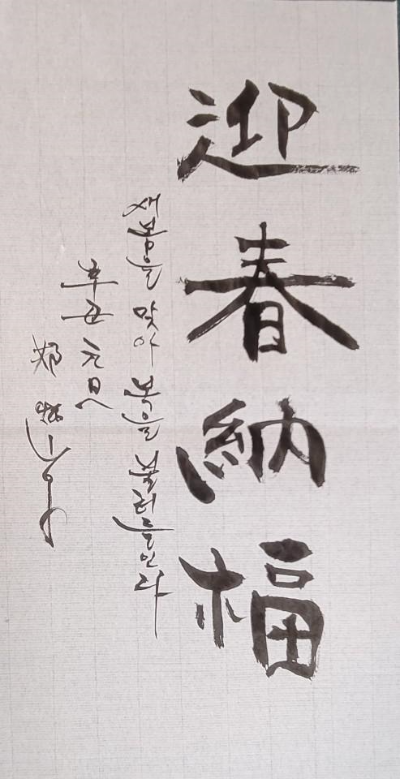 迎春納福
새봄을 맞아 복을 불러들인다
元旦